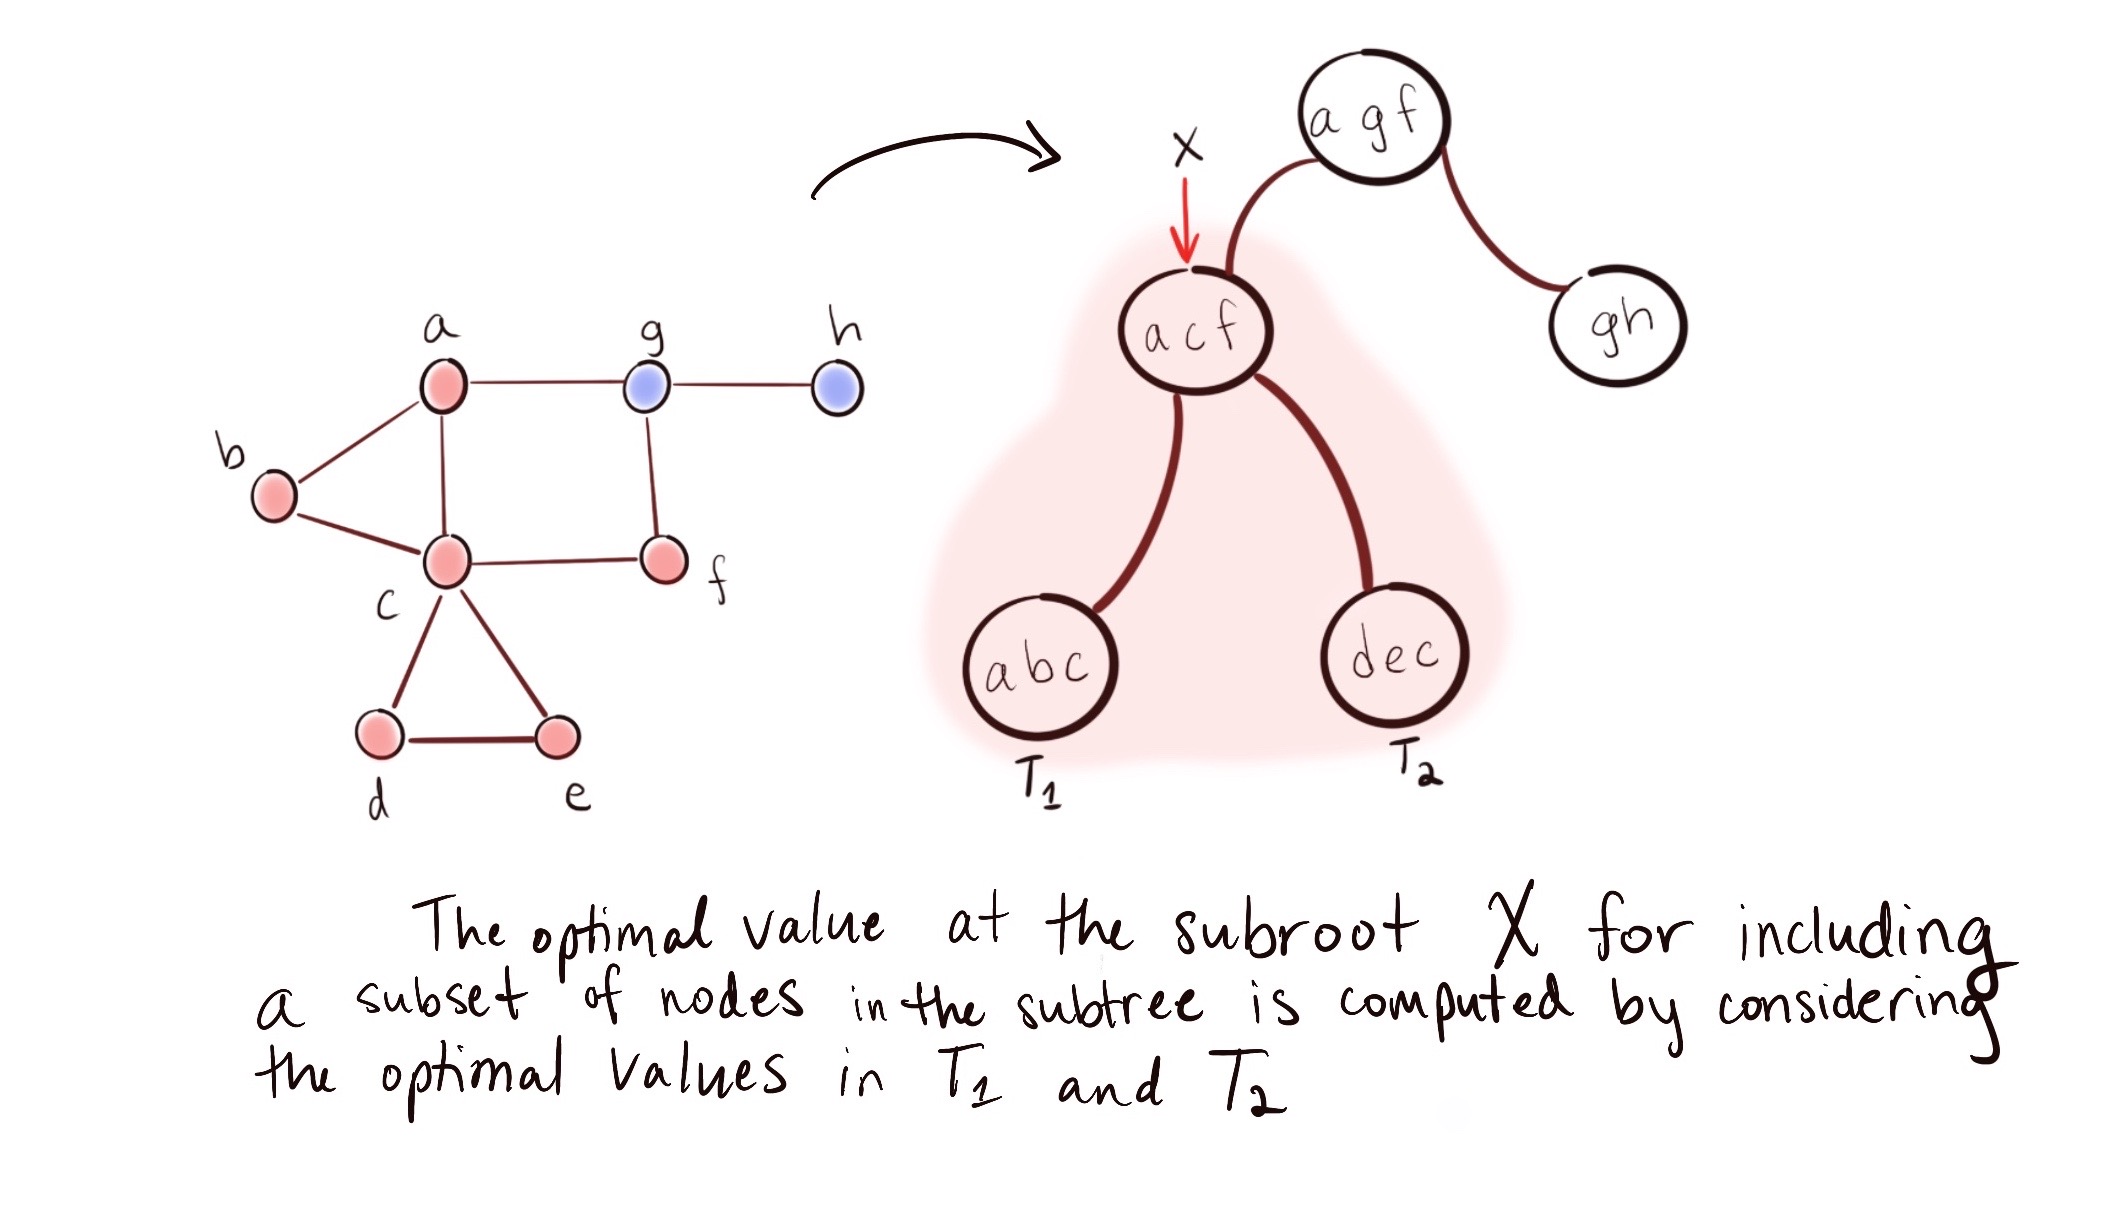 a g f
X
a c f
gh
a g h
b
c f
abc dec
T1 T2
d e
The optimal value at the subroot X for including
a subset of nodes in the subtree is computed by considering
the optimal values in T1 and T2